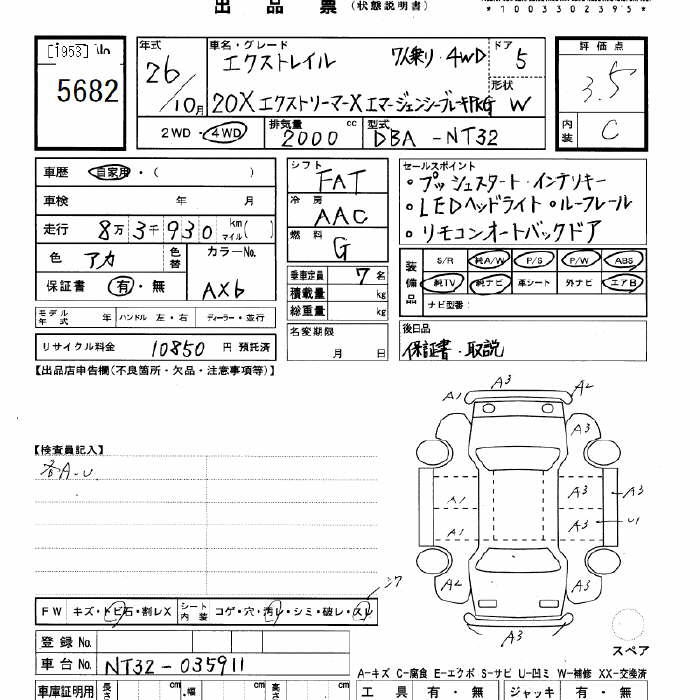 出品票 (状態説明書)
*1003302395*
[1953]
5682
年式 車名・グレード ドア 評価点
26 エクストレイル 7人乗り・4WD 5
3.5
10月 形状
20X エクストリーマーX エマージェンシーブレーキPKG W
2WD・4WD 排気量 2000 cc 型式 DBA-NT32 内装 C
車歴 自家用・( )
シフト FAT
セールスポイント
車検 年 月
冷房 AAC
・プッシュスタート・インテリキー
走行 8万3千930 km マイル( )
・LEDヘッドライト・ルーフレール
燃料 G
・リモコンオートバックドア
色 アカ 色替 カラーNo. AX6
保証書 有・無
乗車定員 7名
積載量 kg
総重量 kg
装備品 S/R 純A/W P/S P/W ABS
純TV 純ナビ 革シート 外ナビ エアB
ナビ型番:
モデル年式 年 ハンドル 左・右 ディーラー・並行
名変期限 月 日
後日品
保証書・取説
リサイクル料金 10850円 預託済
【出品店申告欄(不良箇所・欠品・注意事項等)】
A3
A1 A2
A3
【検査員記入】
各A-U
A3
A1 A3 A3
A1 A3 U1
A2 A3
シワ
FW キズ・トビ石・割レX シート内装 コゲ・穴・汚レ・シミ・破レ・スレ
A3
スペア
登録No.
車台No. NT32-035911
A-キズ C-腐食 E-エクボ S-サビ U-凹ミ W-補修 XX-交換済
車庫証明用 長さ cm 幅 cm 高さ cm 工具 有・無 ジャッキ 有・無